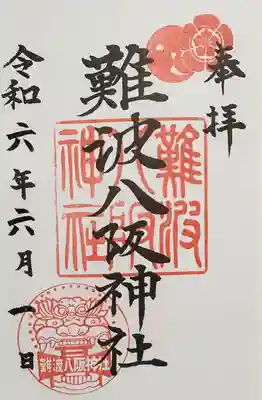 奉拝
難波八阪神社
難波八阪神社
令和六年六月一日
難波八阪神社